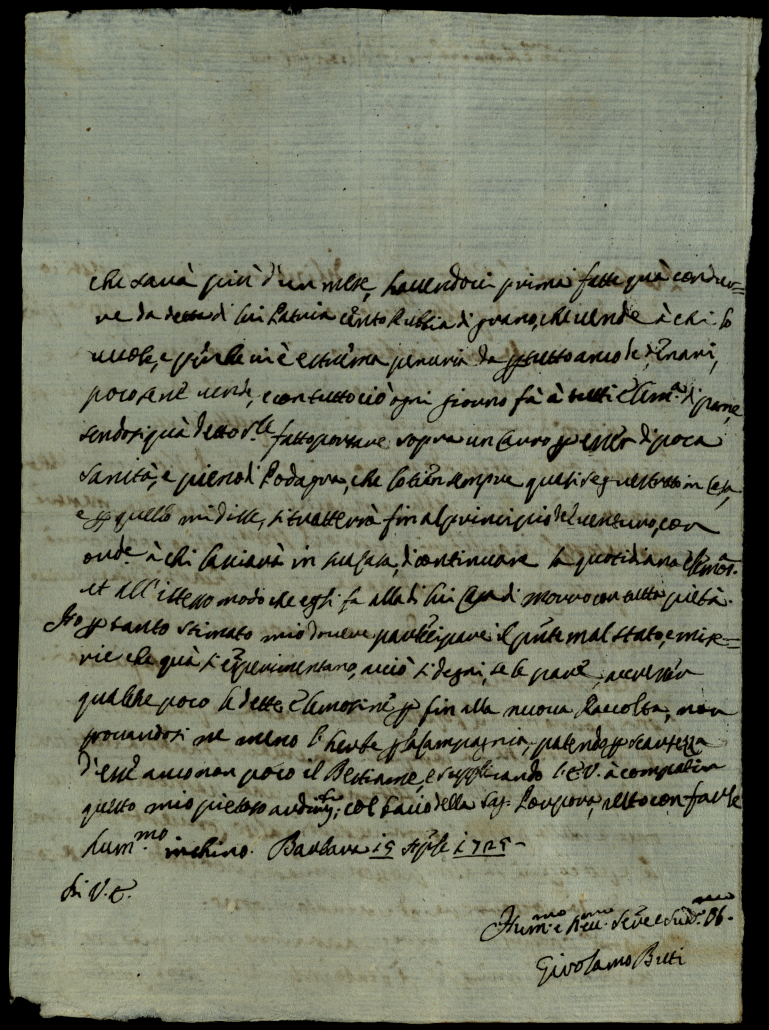 che sarà più d'un mese, havendoci prima fatte quà condur=
re da dette di lui Patria cento Rubbia di grano, che vende à chi lo
vuole, e perche vi è estrema penuria da p tutto anco de denari,
poco se ne vende, e con tutto ciò ogni giorno fà à tutti elem.a di pane,
sendosi quà detto S.re fatto portare sopra un Carro p esser di poca
sanità, e pieno di Podagra, che lo tien sempre quasi sequestrato in Casa,
e p quello mi disse, si tratterrà fin al principio del venturo, con
ord.e à chi lasciarà in sua Casa, di continuare la quotidiana elemos.a
et all'istesso modo che egli fa alla di lui Casa di Morro con tutta pietà.
Ho p tanto stimato mio dovere participare il pnte mal stato, e mise=
rie che quà si esperimentano, acciò si degni, se le pare, accrescer
qualche poco le dette elemosine p fin alla nuova Raccolta, non
trovandosi ne meno l'herbe p la Campagnia, patendo p scarsezza
d'esse anco non poco il Bestiame, e supplicando l'E.V. à compatir
questo mio pietoso ardim.to, col bacio della Sag. Porpora, resto con farle
hum.mo inchino. Barbara 15 Aprile 1725 -
Di V.E.
Hum.mo e Rev.mo Ser.e e Sud.o Ob.mo
Girolamo Bitti